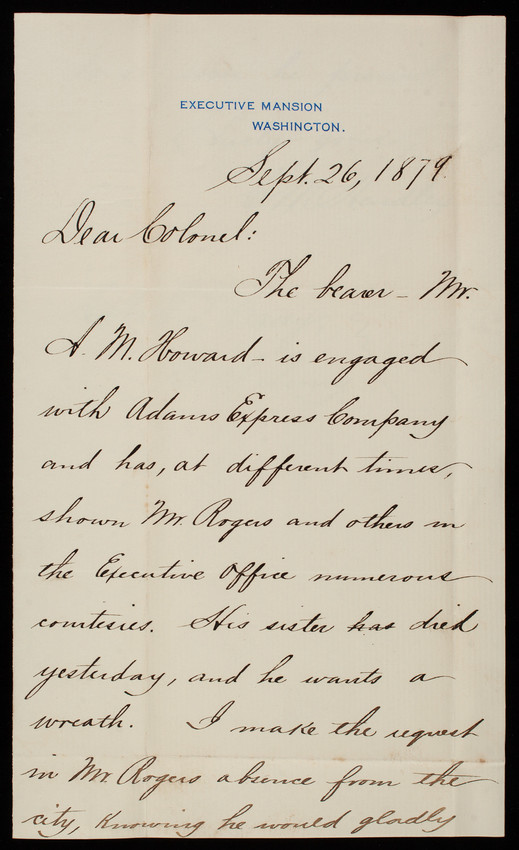 EXECUTIVE MANSION
WASHINGTON.
Sept. 26, 1879.
Dear Colonel:
The bearer - Mr.
A. M. Howard - is engaged
with Adams Express Company
and has, at different times,
shown Mr. Rogers and others in
the Executive Office numerous
courtesies. His sister has died
yesterday, and he wants a
wreath. I make the request
in Mr. Rogers absence from the
city, knowing he would gladly